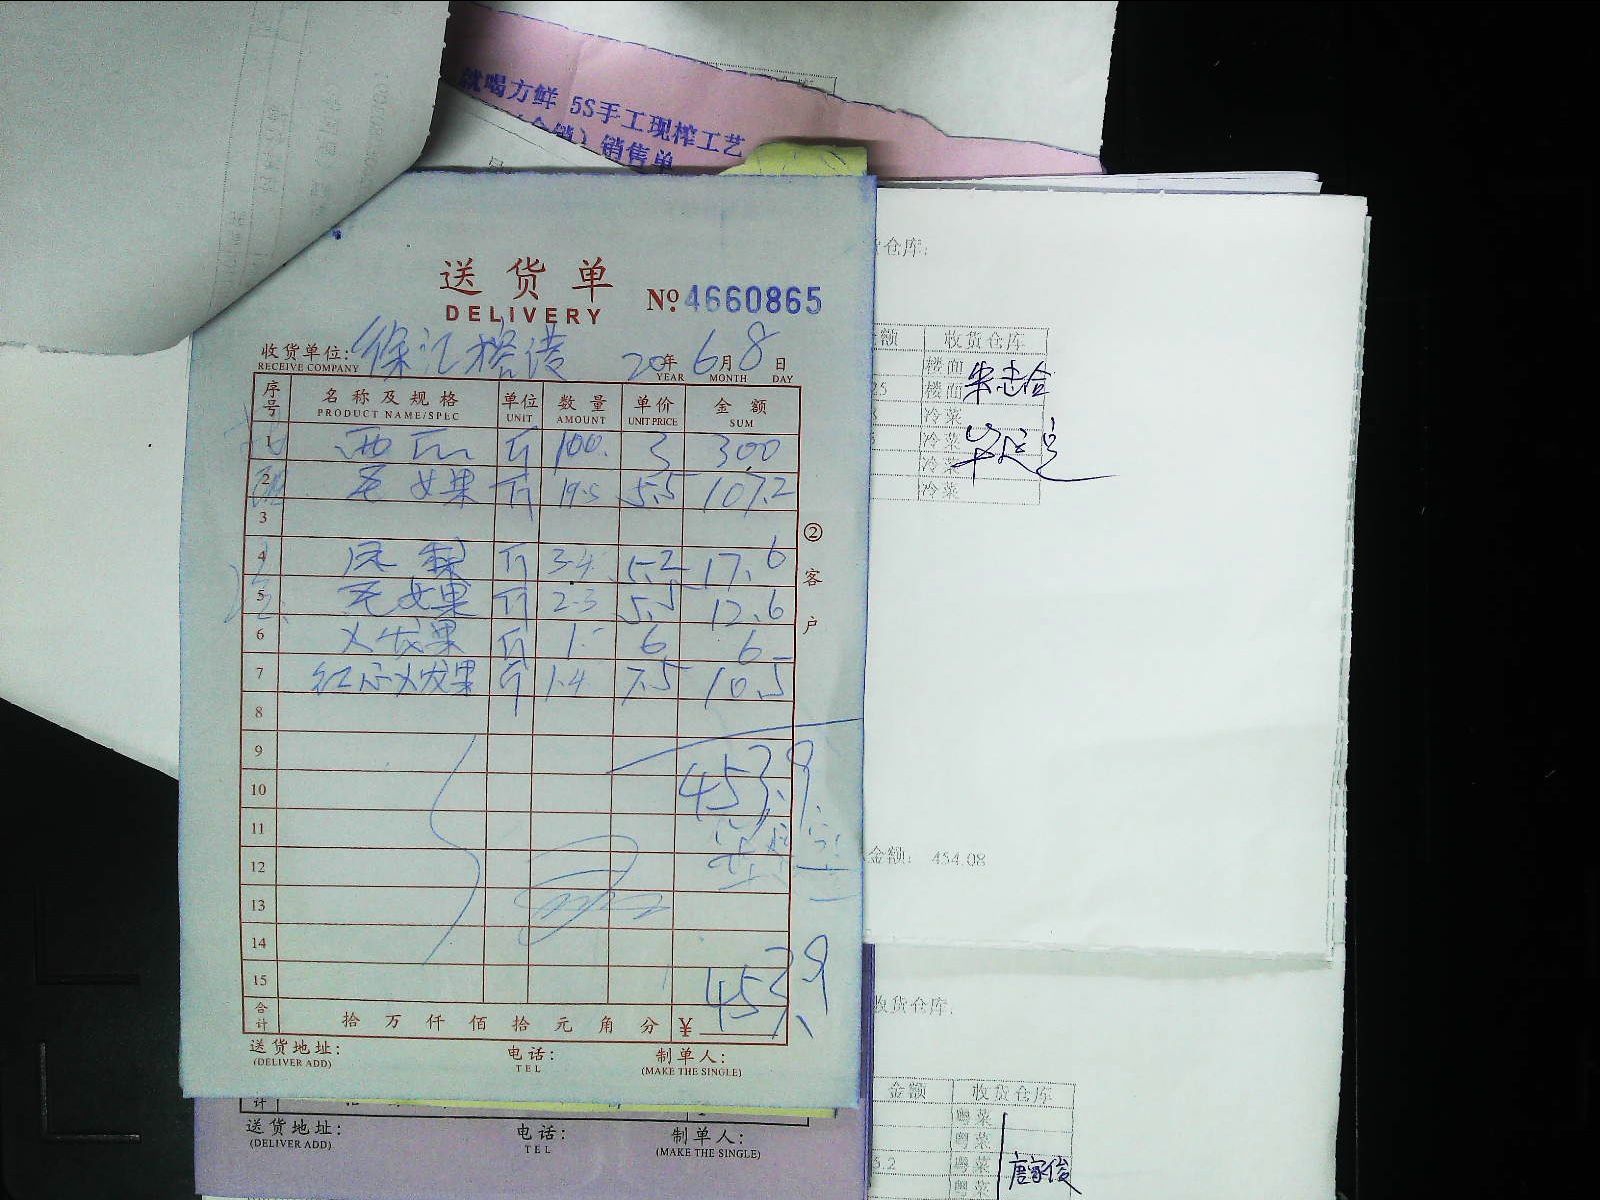 就喝方鲜 5S手工现榨工艺
销售单
送货单
DELIVERY
№ 4660865
收货单位: 徐汇 20年 6月 8日
RECEIVE COMPANY YEAR MONTH DAY
序号 名称及规格 单位 数量 单价 金额
PRODUCT NAME/SPEC UNIT AMOUNT UNIT PRICE SUM
1 西瓜 斤 100. 3 300
2 斤 19.5 5.5 107.2
3
4 凤梨 斤 3.4 5.2 17.6
5 斤 2.3 5.5 12.6
6 火龙果 斤 1.- 6 6
7 红心火龙果 斤 1.4 7.5 10.5
8
9
10 453.9
11
12
13
14
15 453.9
合计 拾 万 仟 佰 拾 元 角 分 ¥
送货地址: 电话: 制单人:
(DELIVER ADD) TEL (MAKE THE SINGLE)
② 客户
计
送货地址: 电话: 制单人:
(DELIVER ADD) TEL (MAKE THE SINGLE)
仓库:
额 收货仓库
楼面
楼面
冷菜
冷菜
冷菜
冷菜
金额: 454.08
收货仓库:
金额 收货仓库
粤菜
粤菜
3.2 粤菜
粤菜
唐家俊